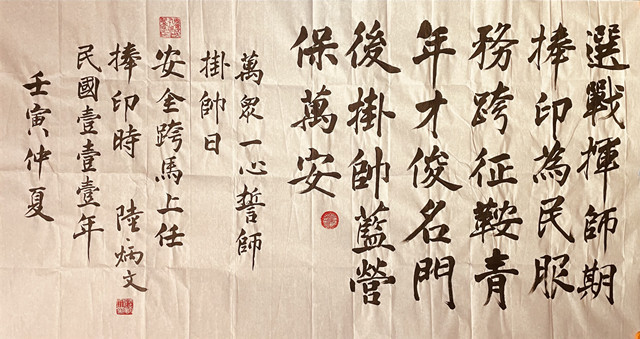 選戰揮師期
捧印為民服
務跨征鞍青
年才俊名門
後掛帥藍營
保萬安
萬眾一心誓師
掛帥日
安全跨馬上任
捧印時 陸炳文
民國壹壹壹年
壬寅仲夏